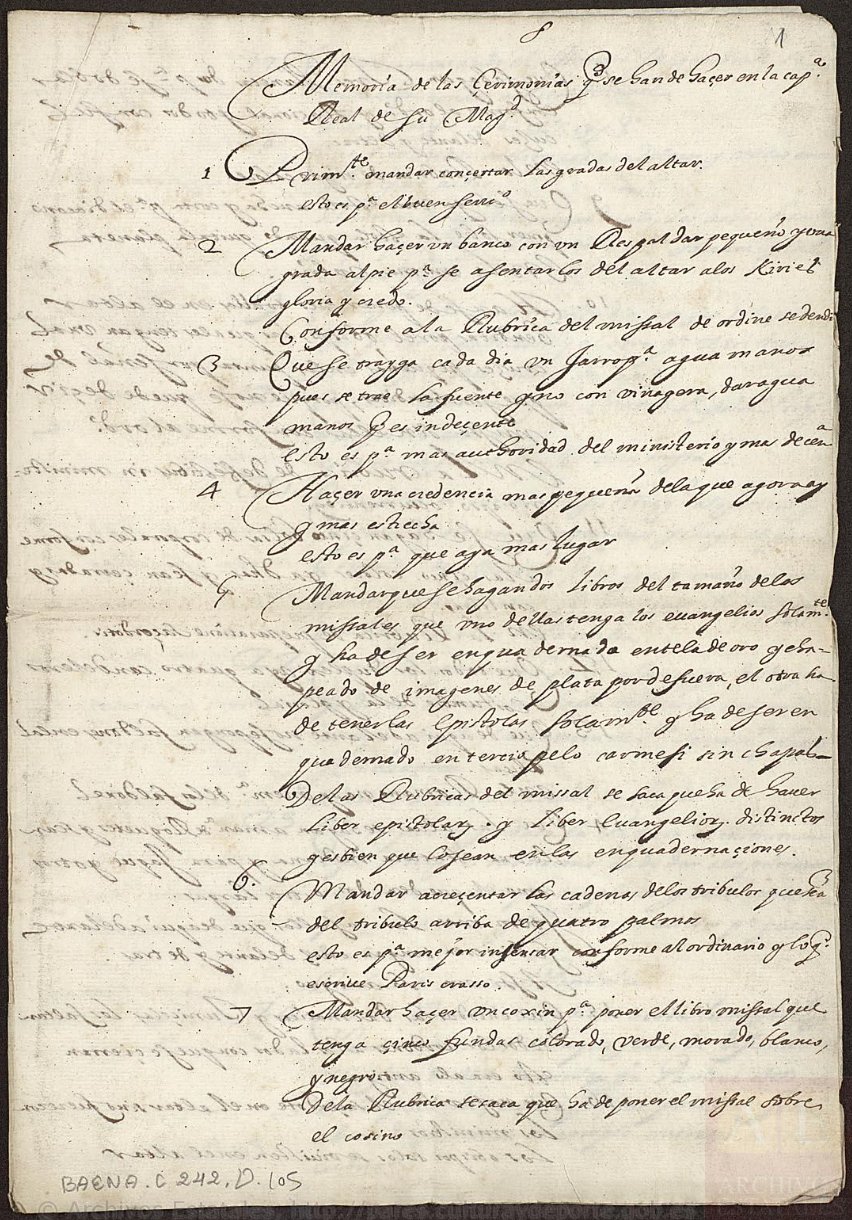 8
1
Memoria de las Çerimonias q̃ se han de haçer en la cap.ª
Real de su Mag.d
1 Prim.te mandar conçertar las gradas del altar.
esto es p.ª el buen serui.º
2 Mandar haçer vn banco con vn Respaldar pequeño y vna
grada al pie p.ª se asentar los del altar a los Kiries
gloria y credo.
Conforme a la Rubrica del missal de ordine sedendi
3 Que se trayga cada dia vn Jarro p.ª agua manos
pues se trae la fuente y no con vinagera, dar agua
manos q̃ es indeçente
esto es p.ª mas authoridad del ministerio y mas deçen.ª
4 Haçer vna credencia mas pequeña de la que agora ay
y mas estrecha
esto es p.ª que aya mas lugar
5 Mandar que se hagan dos libros del tamaño de los
missales que vno dellos tenga los euangelios solam.te
y ha de ser enquadernado en tela de oro y cha-
peado de imagenes de plata por defuera, el otro ha
de tener las Epistolas solam.te y ha de ser en
quadernado en terciopelo carmesi sin chapas
De las Rubricas del missal se saca que ha de hauer
liber epistolar. y liber Euangelior. distinctos
y es bien que lo sean en las enquadernaçiones.
6. Mandar acreçentar las cadenas de los tribulos que sea
del tribulo arriba de quatro palmos
esto es p.ª mejor insensar conforme al ordinario y lo q.
escriue Paris crasso.
7 Mandar haçer vn coxin p.ª poner el libro missal que
tenga çinco fundas colorado, verde, morado, blanco,
y negro.
De la Rubrica se saca que ha de poner el missal sobre
el cosino
BAENA. C 242. D. 105
ARCHIVOS
ESTATALES